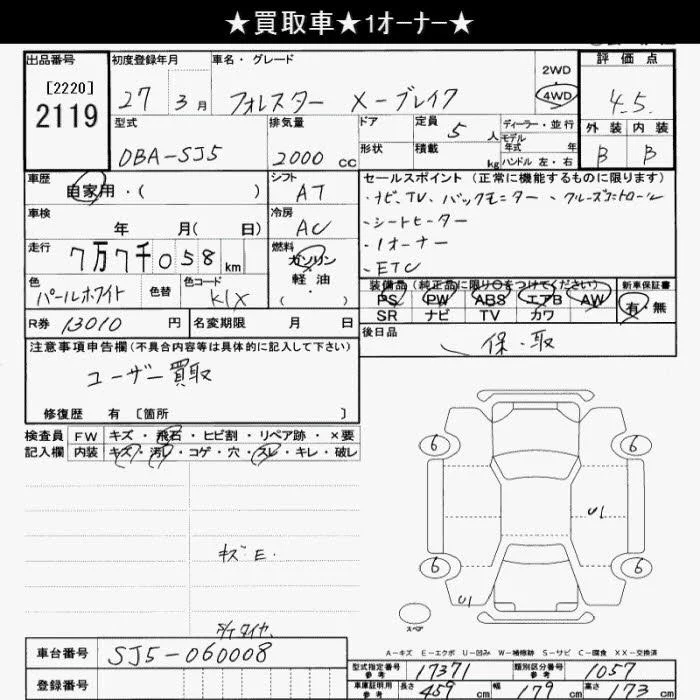 ★買取車★1オーナー★
出品番号 初度登録年月 車名・グレード 評価点
[2220]
2119
27 3月 フォレスター X-ブレイク
2WD
4WD
4.5
型式 排気量 ドア 定員 5 人 ディーラー・並行
モデル
年式 年
外装 内装
DBA-SJ5 2000 cc 形状 積載 kg ハンドル 左・右 B B
車歴 シフト セールスポイント (正常に機能するものに限ります)
自家用・( ) AT
・ナビ、TV、バックモニター、クルーズコントロール
車検 冷房
・シートヒーター
年 月( 日) AC
・1オーナー
走行 7万7千058km 燃料
ガソリン
・ETC
軽油
・( )
色 パールホワイト 色替 色コード K1X
装備品 (純正品に限り○をつけてください) 新車保証書
PS PW ABS エアB AW
有 無
SR ナビ TV カワ
R券 13010 円 名変期限 月 日
後日品
保・取
注意事項申告欄(不具合内容等は具体的に記入して下さい)
ユーザー買取
修復歴 有 [箇所 ]
検査員 FW キズ・飛石・ヒビ割・リペア跡・×要
記入欄 内装 キズ・汚れ・コゲ・穴・スレ・キレ・破レ
6 6
U1
キズE.
6 6
U1
スペア
タイヤ
A-キズ E-エクボ U-凹み W-補修跡 S-サビ C-腐食 XX-交換済
車台番号 SJ5-060008
型式指定番号 参考 17371 類別区分番号 参考 1057
登録番号
車庫証明用 参考 長さ 459 cm 幅 179 cm 高さ 173 cm